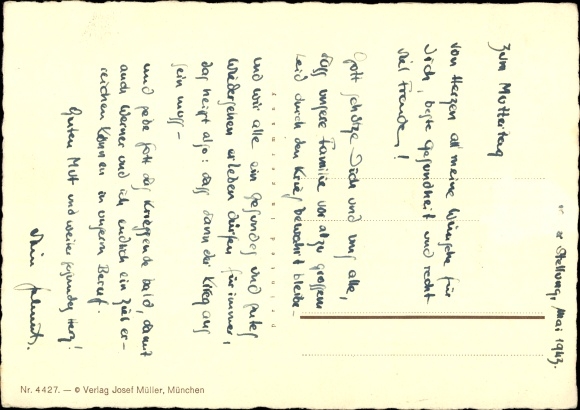 er Stellung, Mai 1943.
Zum Muttertag
von Herzen all meine Wünsche für
Dich, beste Gesundheit und recht
viel Freude!
Gott schütze Dich und uns alle,
dass unsere Familie vor allzu grossem
Leid durch den Krieg bewahrt bleibe
und wir alle ein gesundes und gutes
Wiedersehen erleben dürfen für immer,
das heisst also: dass dann der Krieg aus
sein muss –
und gebe Gott das Kriegsende bald, damit
auch Werner und ich endlich ein Ziel er-
reichen können in unserm Beruf.
Guten Mut und weiter gesundes Herz!
Dein
Nr. 4427. — © Verlag Josef Müller, München